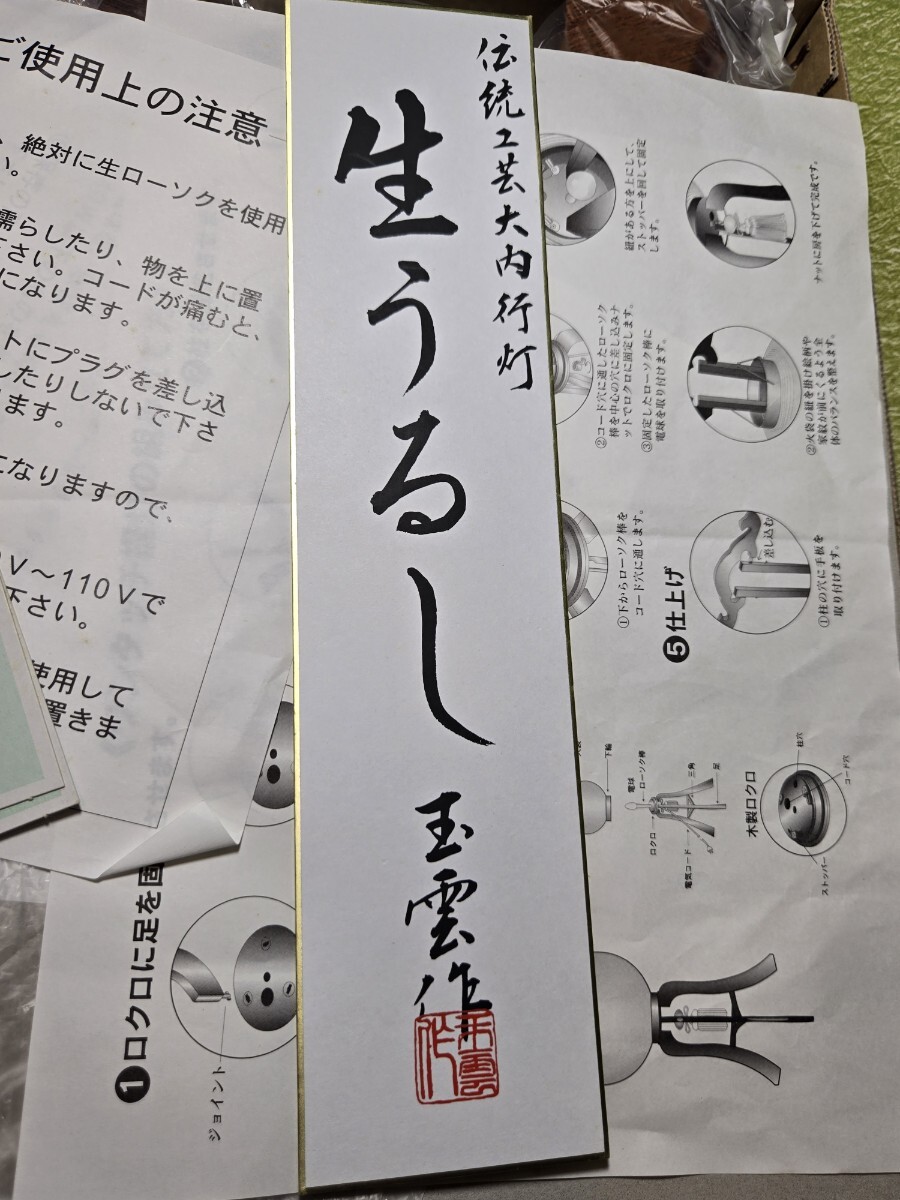 伝統工芸大内行灯
生うるし
玉雲作
玉雲作
ご使用上の注意
、絶対に生ローソクを使用
い。
濡らしたり、物を上に置
下さい。コードが痛むと、
になります。
トにプラグを差し込
したりしないで下さ
ます。
になりますので、
V～110Vで
下さい。
使用して
置きま
紐がある方を上にして、
ストッパーを回して固定
します。
ナットに房を下げて完成です。
②コード穴に通したローソク
棒を中心の穴に差し込みナ
ットでロクロに固定します。
③固定したローソク棒に
電球を取り付けます。
②火袋の紐を掛け絵柄や
家紋が前にくるよう全
体のバランスを整えます。
①下からローソク棒を
コード穴に通します。
❺仕上げ
差し込む
①柱の穴に手板を
取り付けます。
下輪
ローソク棒
電球
三角
足
ロクロ
電気コード
木製ロクロ
柱穴
コード穴
ストッパー
❶ロクロに足を固
ジョイント